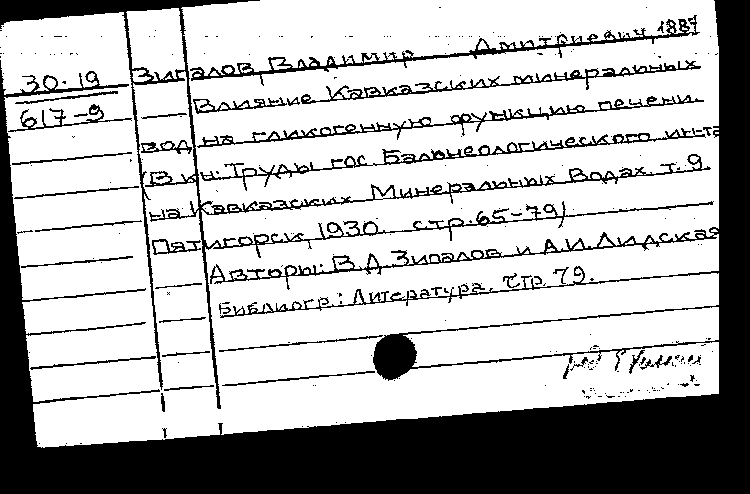 30.19
617-9
Зипалов, Владимир Дмитриевич, 1887
Влияние Кавказских минеральных
вод на гликогенную функцию печени.
(В кн: Труды гос. Бальнеологического ин-та
на Кавказских Минеральных Водах. т. 9.
Пятигорск, 1930. стр. 65-79)
Авторы: В.Д. Зипалов и А.И. Лидская
Библиогр.: Литература. стр. 79.